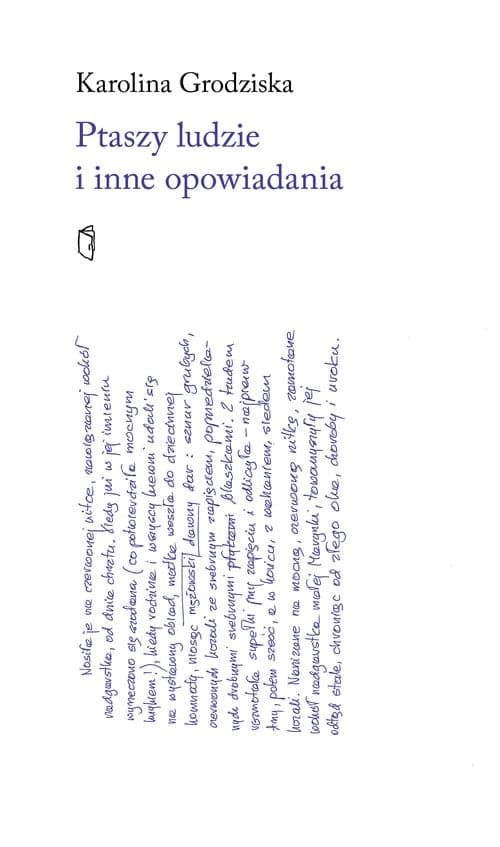 Karolina Grodziska
Ptaszy ludzie
i inne opowiadania
Nosiła je na czerwonej nitce, zawiązanej wokół
nadgarstka, od dnia chrztu. Kiedy już w jej imieniu
wyrzeczono się szatana (co potwierdziła mocnym
krzykiem!), kiedy rodzina i wszyscy krewni udali się
na wystawny obiad, matka weszła do dziecinnej
komnaty, niosąc mężowski dawny dar: sznur grubych,
czerwonych korali ze srebrnym zapięciem, poprzedziela-
nych drobnymi srebrnymi płytkami blaszkami. Z trudem
rozmotała supełki przy zapięciu i odliczyła – najpierw
trzy, potem sześć, a w końcu, z wahaniem, siedem
korali. Nanizane na mocną, czerwoną nitkę, zamotane
wokół nadgarstka małej Marynki, towarzyszyły jej
odtąd stale, chroniąc od złego oka, choroby i uroku.